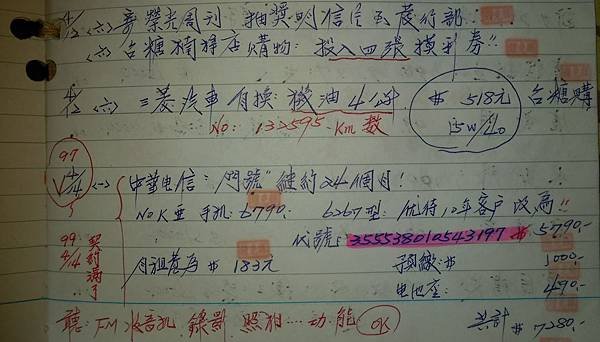 4/12 〈六〉 寄榮光周刊 抽獎明信片
〈六〉 台糖楠梓店購物: 投入四張摸彩券!!
4/12 〈六〉 三菱汽車 有換: 機油4公升 $ 518元 台糖購
NO: 132595. Km 數 15W/40
97
4/14 〈一〉 中華電信: "門號" 續約24個月!
NOKIA 手机: 6790. 6267型: 优待10年客戶改為!!
代號: 355538010543197 $ 5790.-
99. 4/14 契約滿了
月租費為 $ 183元 予繳: $ 1000.-
电池座: 490.-
聽: FM 收音机. 錄影. 照相…功能 OK 共計 $ 7280.-